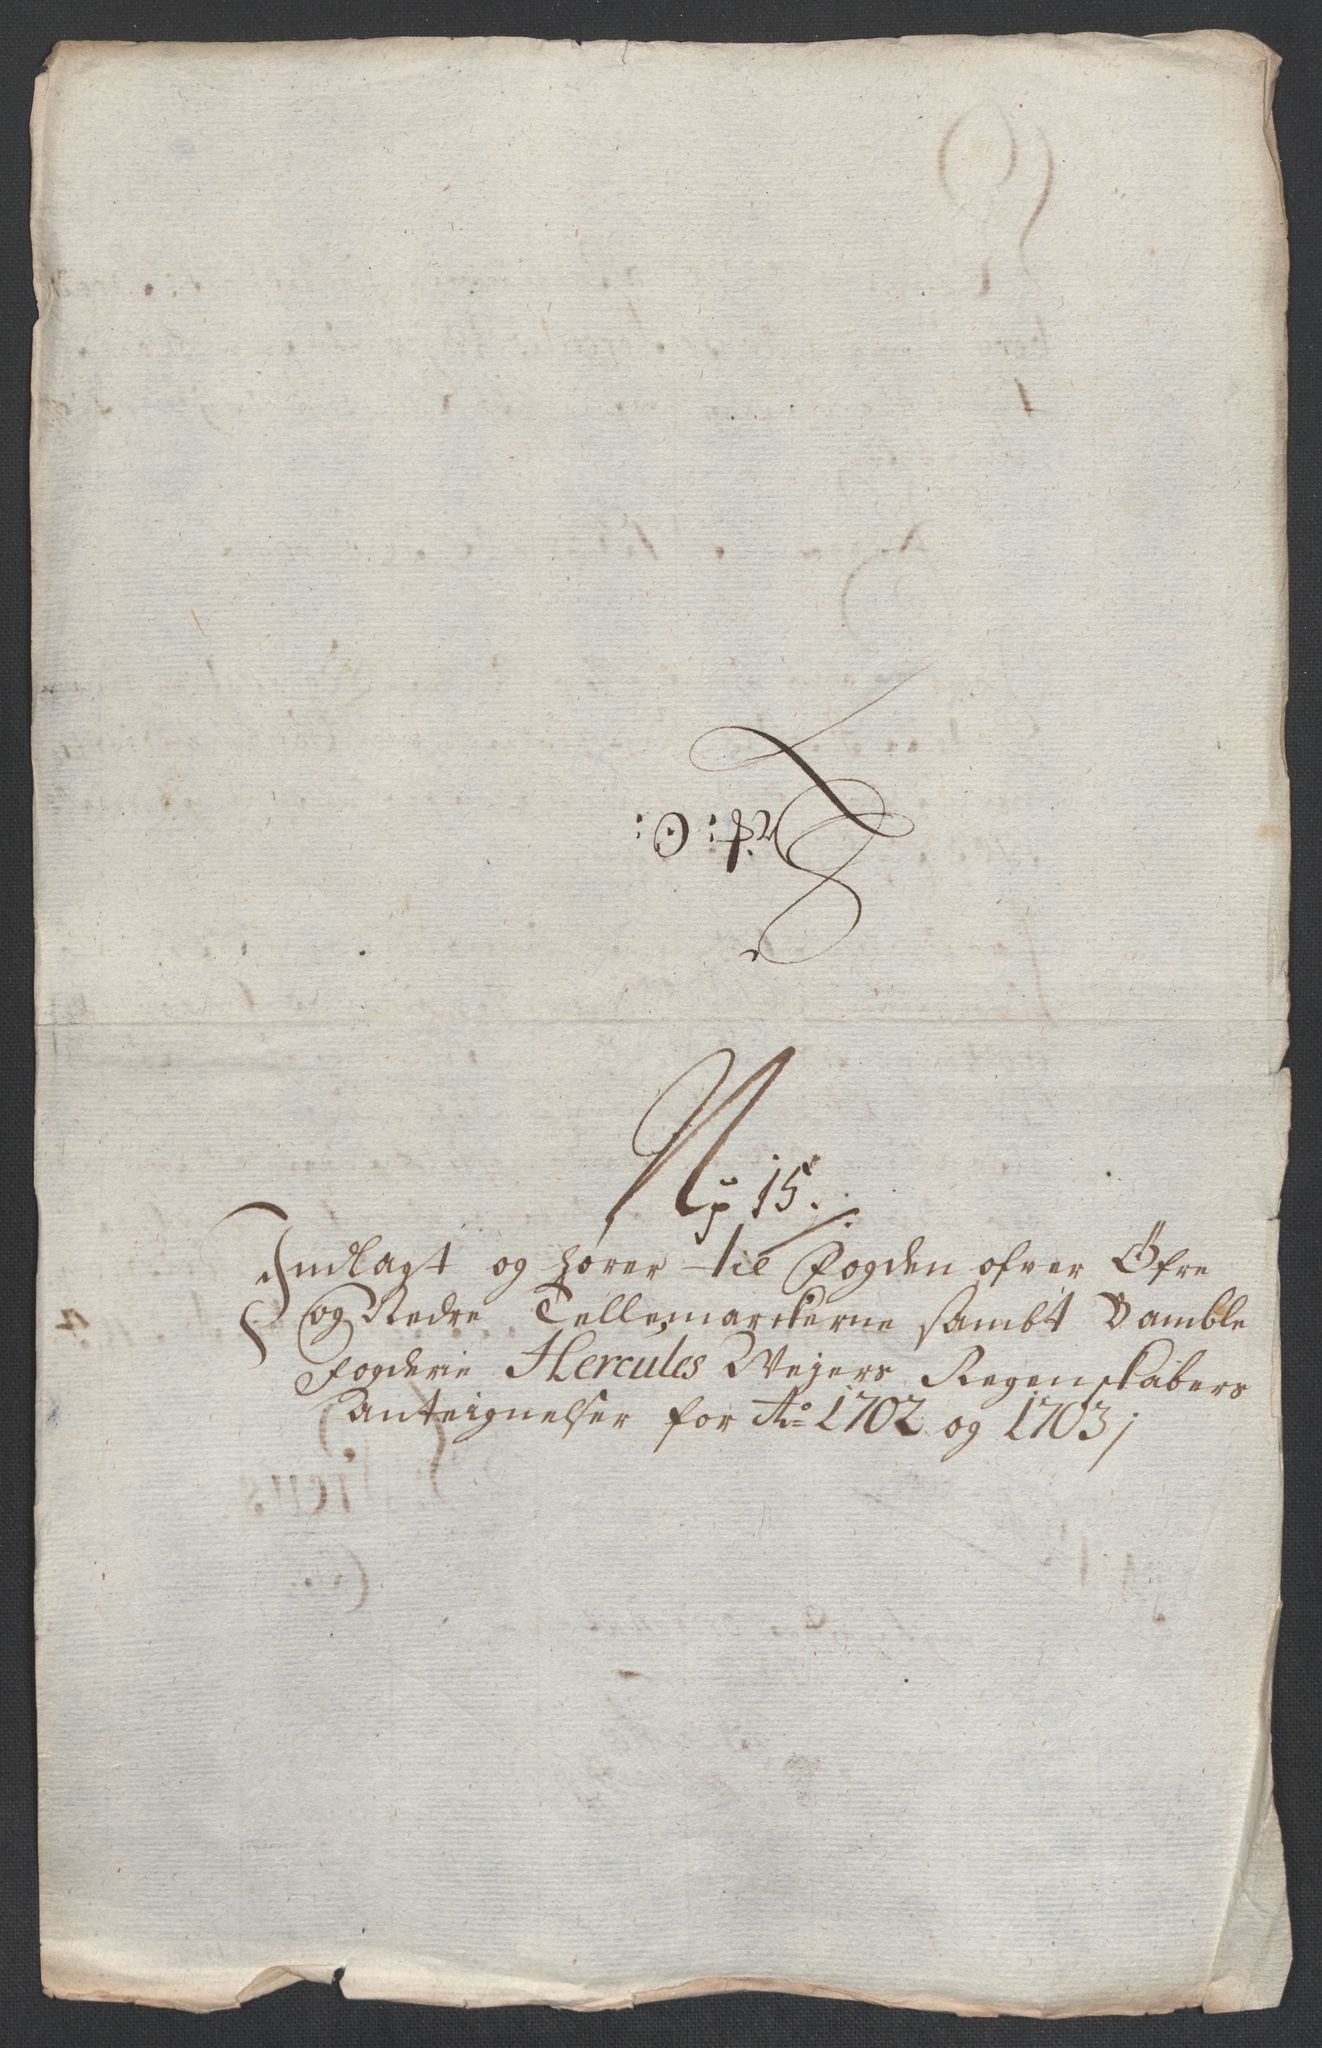 No 15.
Indlagt og hører til Fogden ofver Øfre
og Nedre Tellemarckerne sambt Bamble
Fogderie Hercules Weyers Regenskabers
Anteignelser for Ao 1702 og 1703;